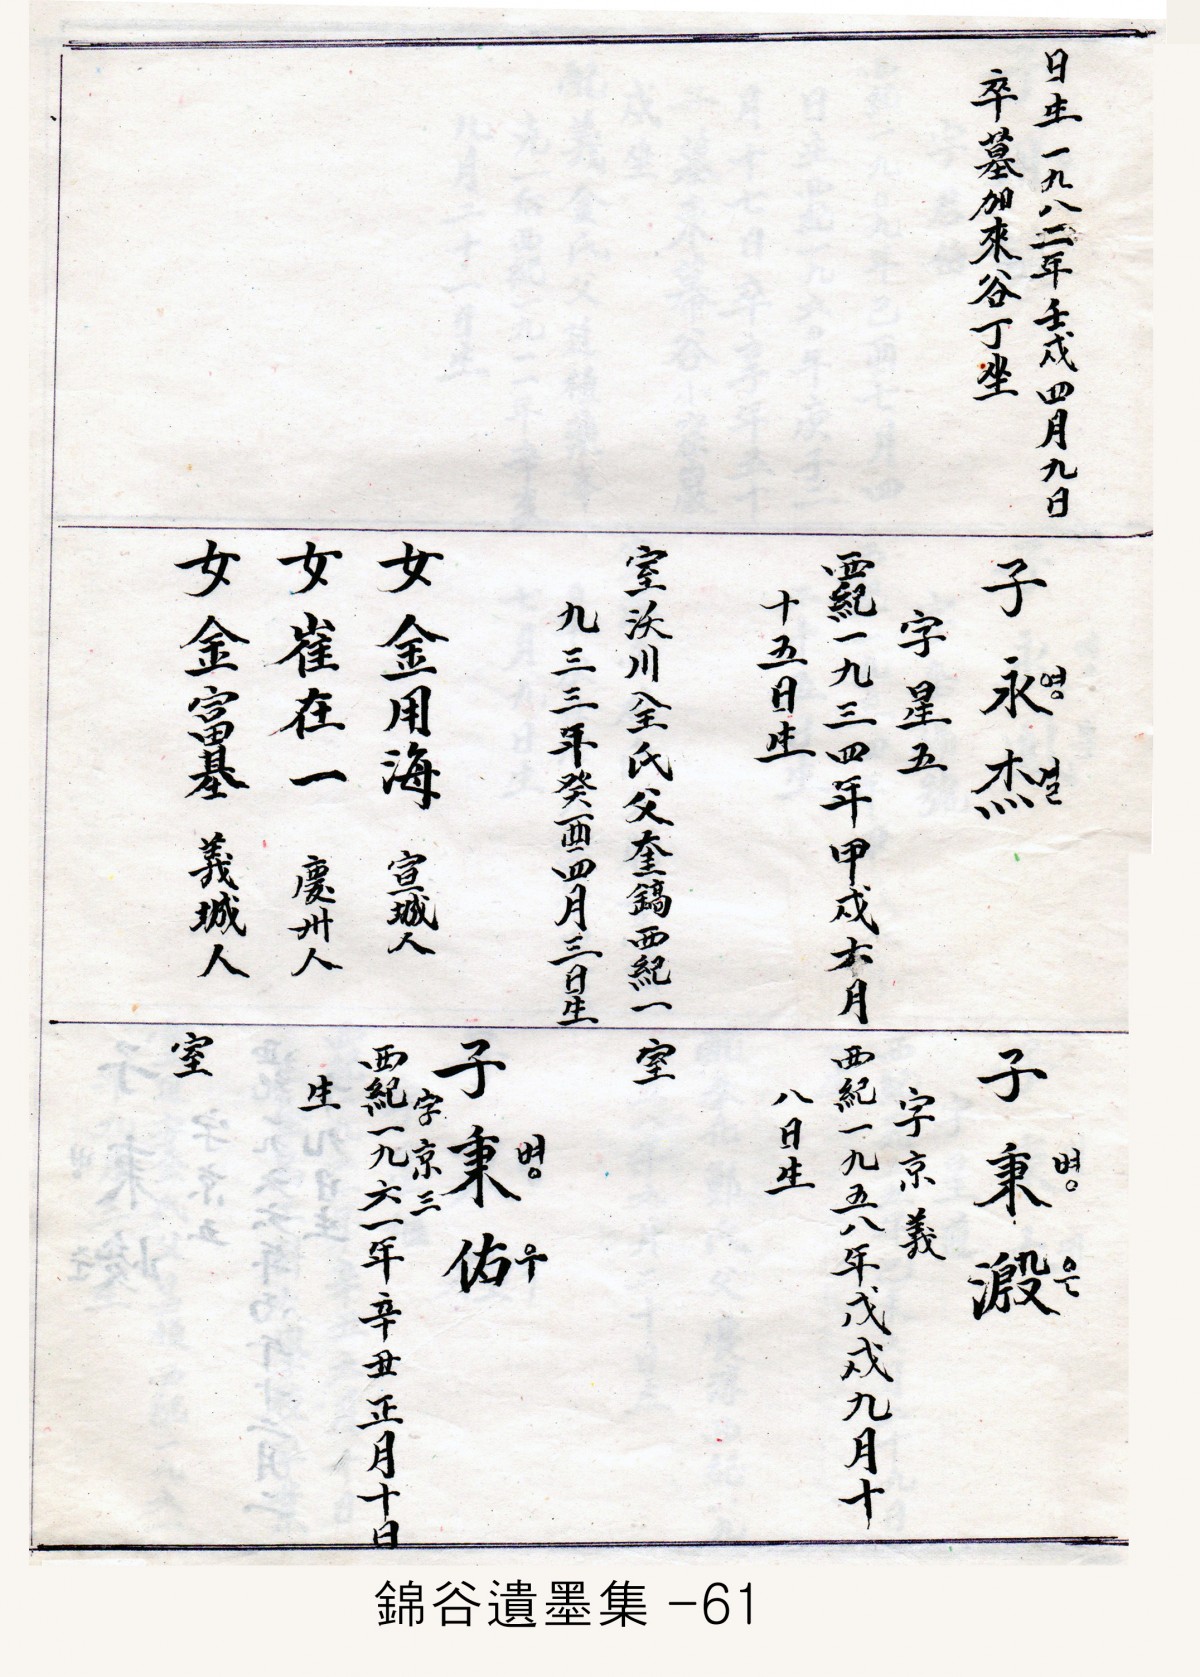 日生一九八二年壬戌四月九日
卒墓加來谷丁坐
子永杰
영걸
字星五
西紀一九三四年甲戌六月
十五日生
室沃川全氏父奎鎬西紀一
九三三年癸酉四月三日生
女金用海 宣城人
女崔在一 慶州人
女金富基 義城人
子秉濦
병은
字京義
西紀一九五八年戊戌九月十
八日生
室
子秉佑
병우
字京三
西紀一九六一年辛丑正月十日
生
室
錦谷遺墨集 -61